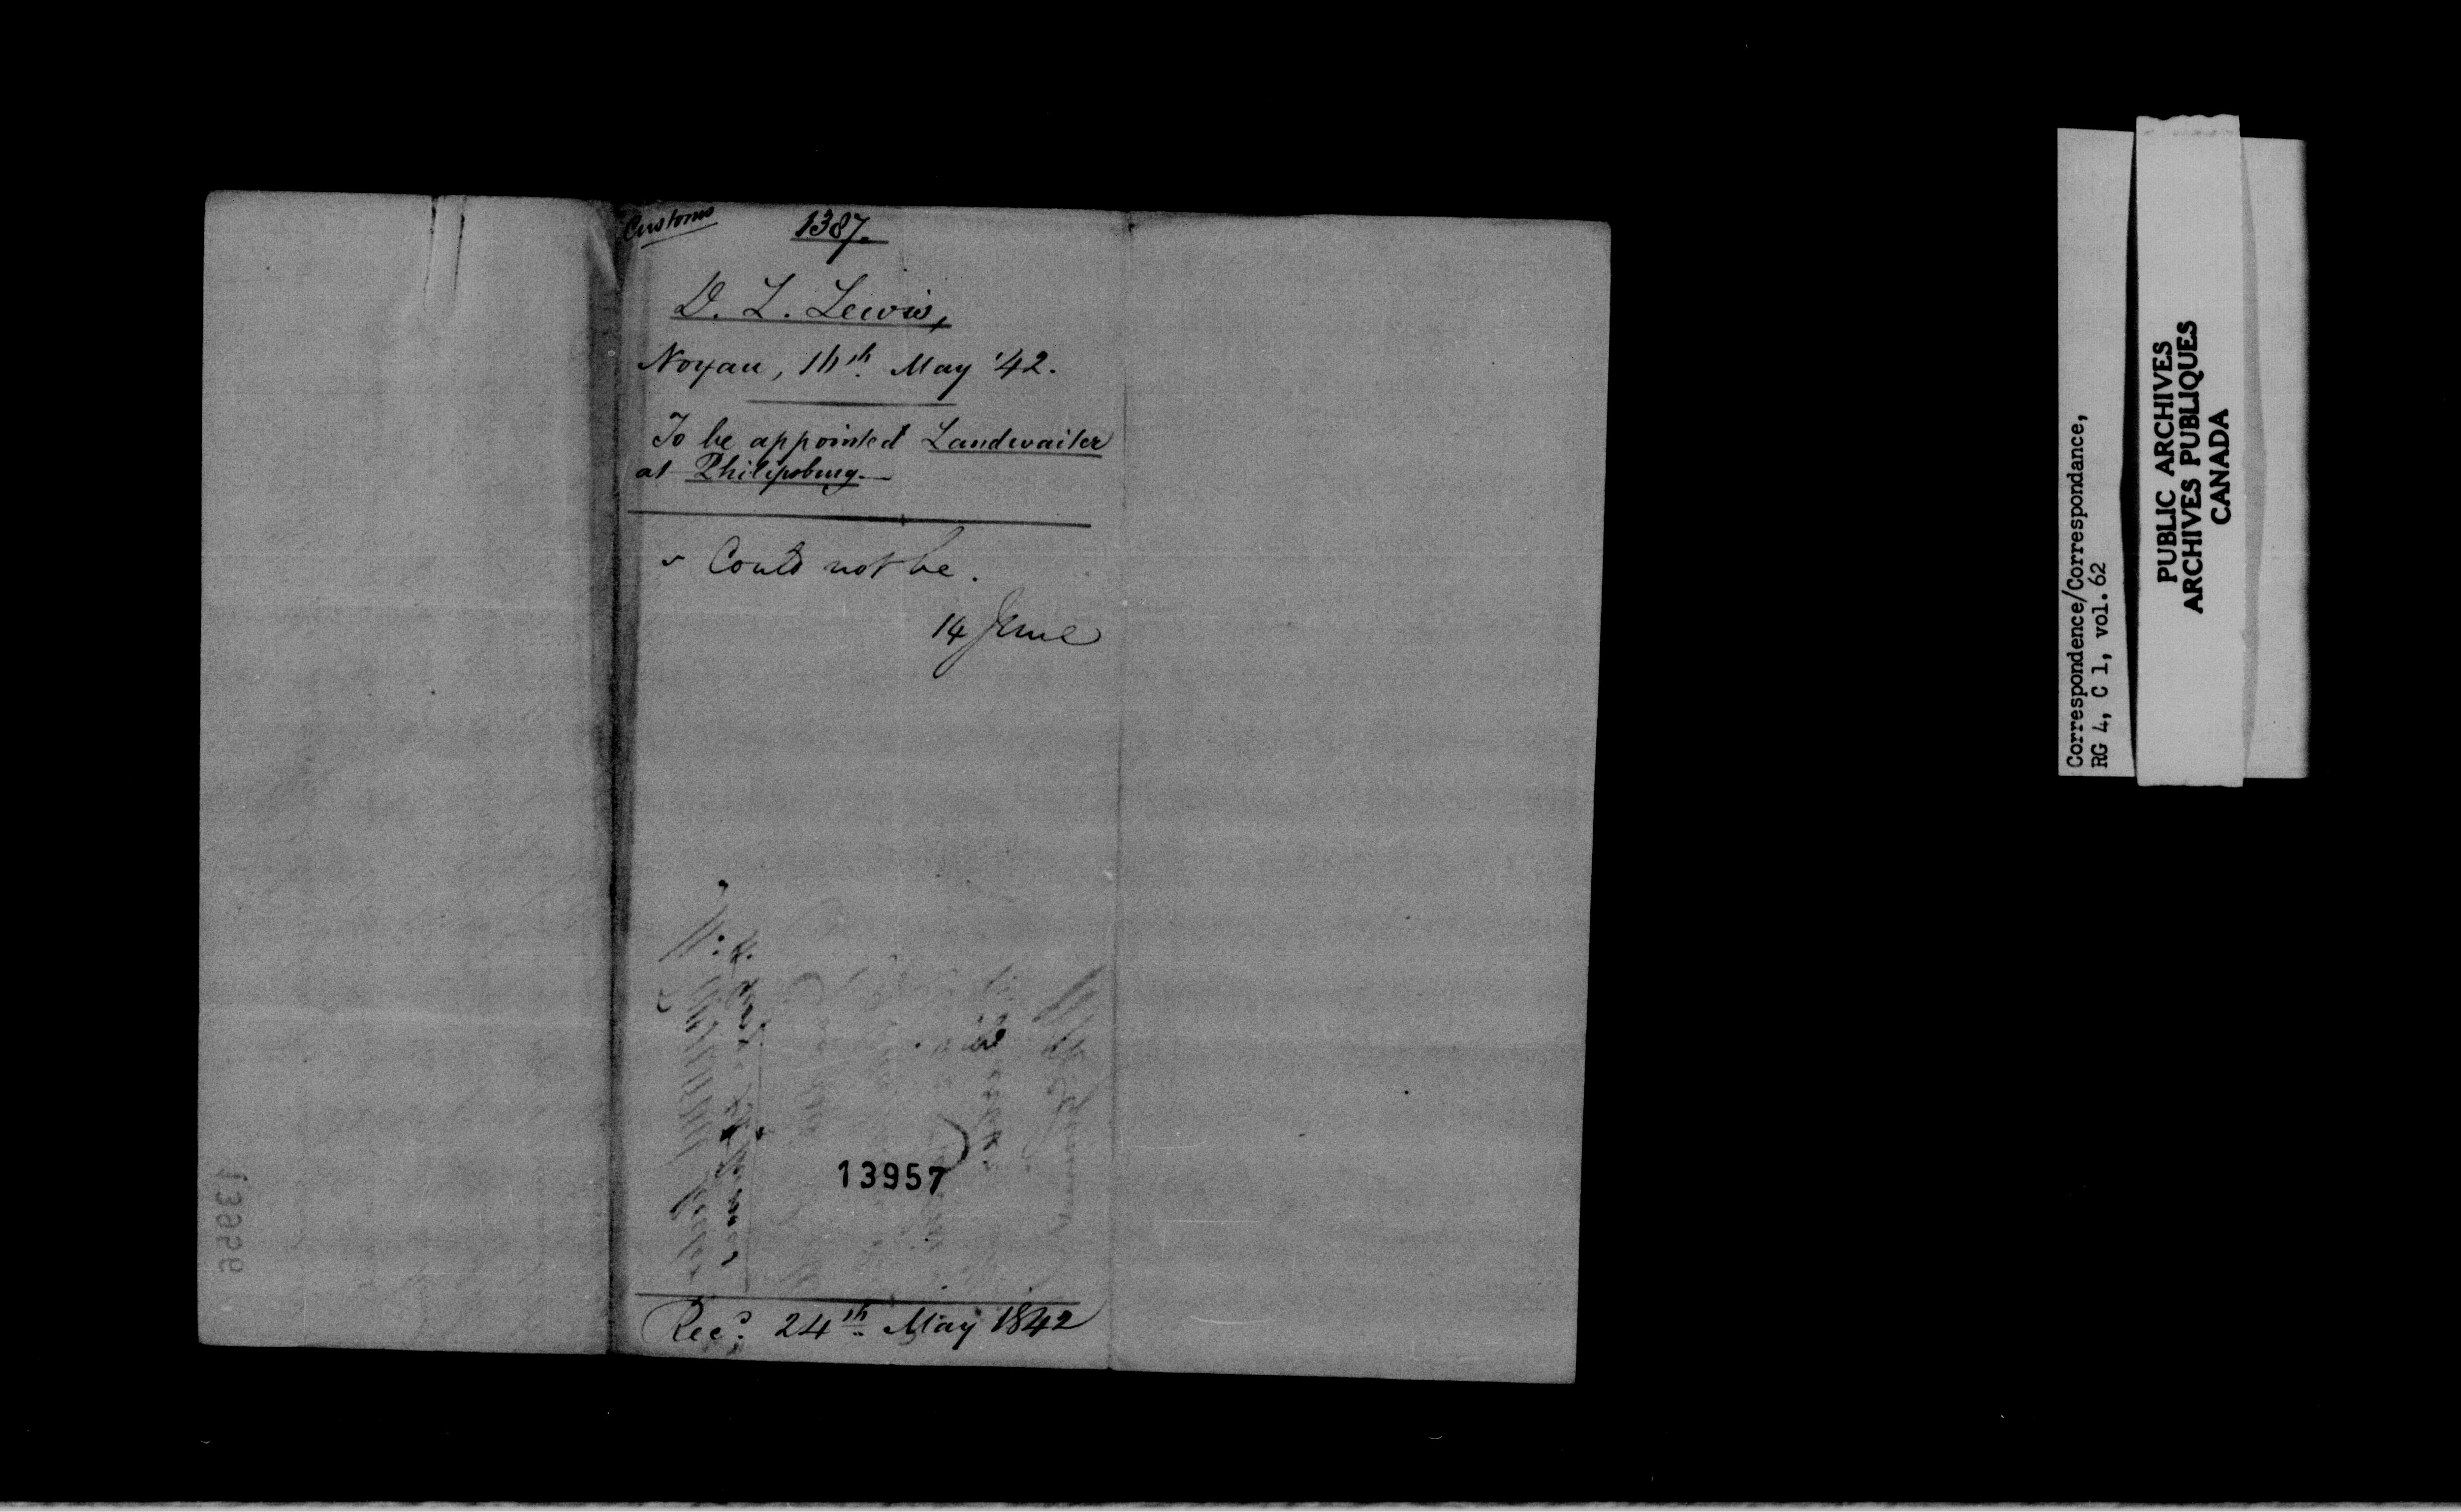 Customs
1387.
D. L. Lewis,
Noyan, 16th May '42.
To be appointed Landwaiter
at Philipsburg.
Could not be.
14 June
13957
Recd. 24th May 1842
13956
Correspondence/Correspondance,
RG 4, C 1, vol. 62
PUBLIC ARCHIVES
ARCHIVES PUBLIQUES
CANADA